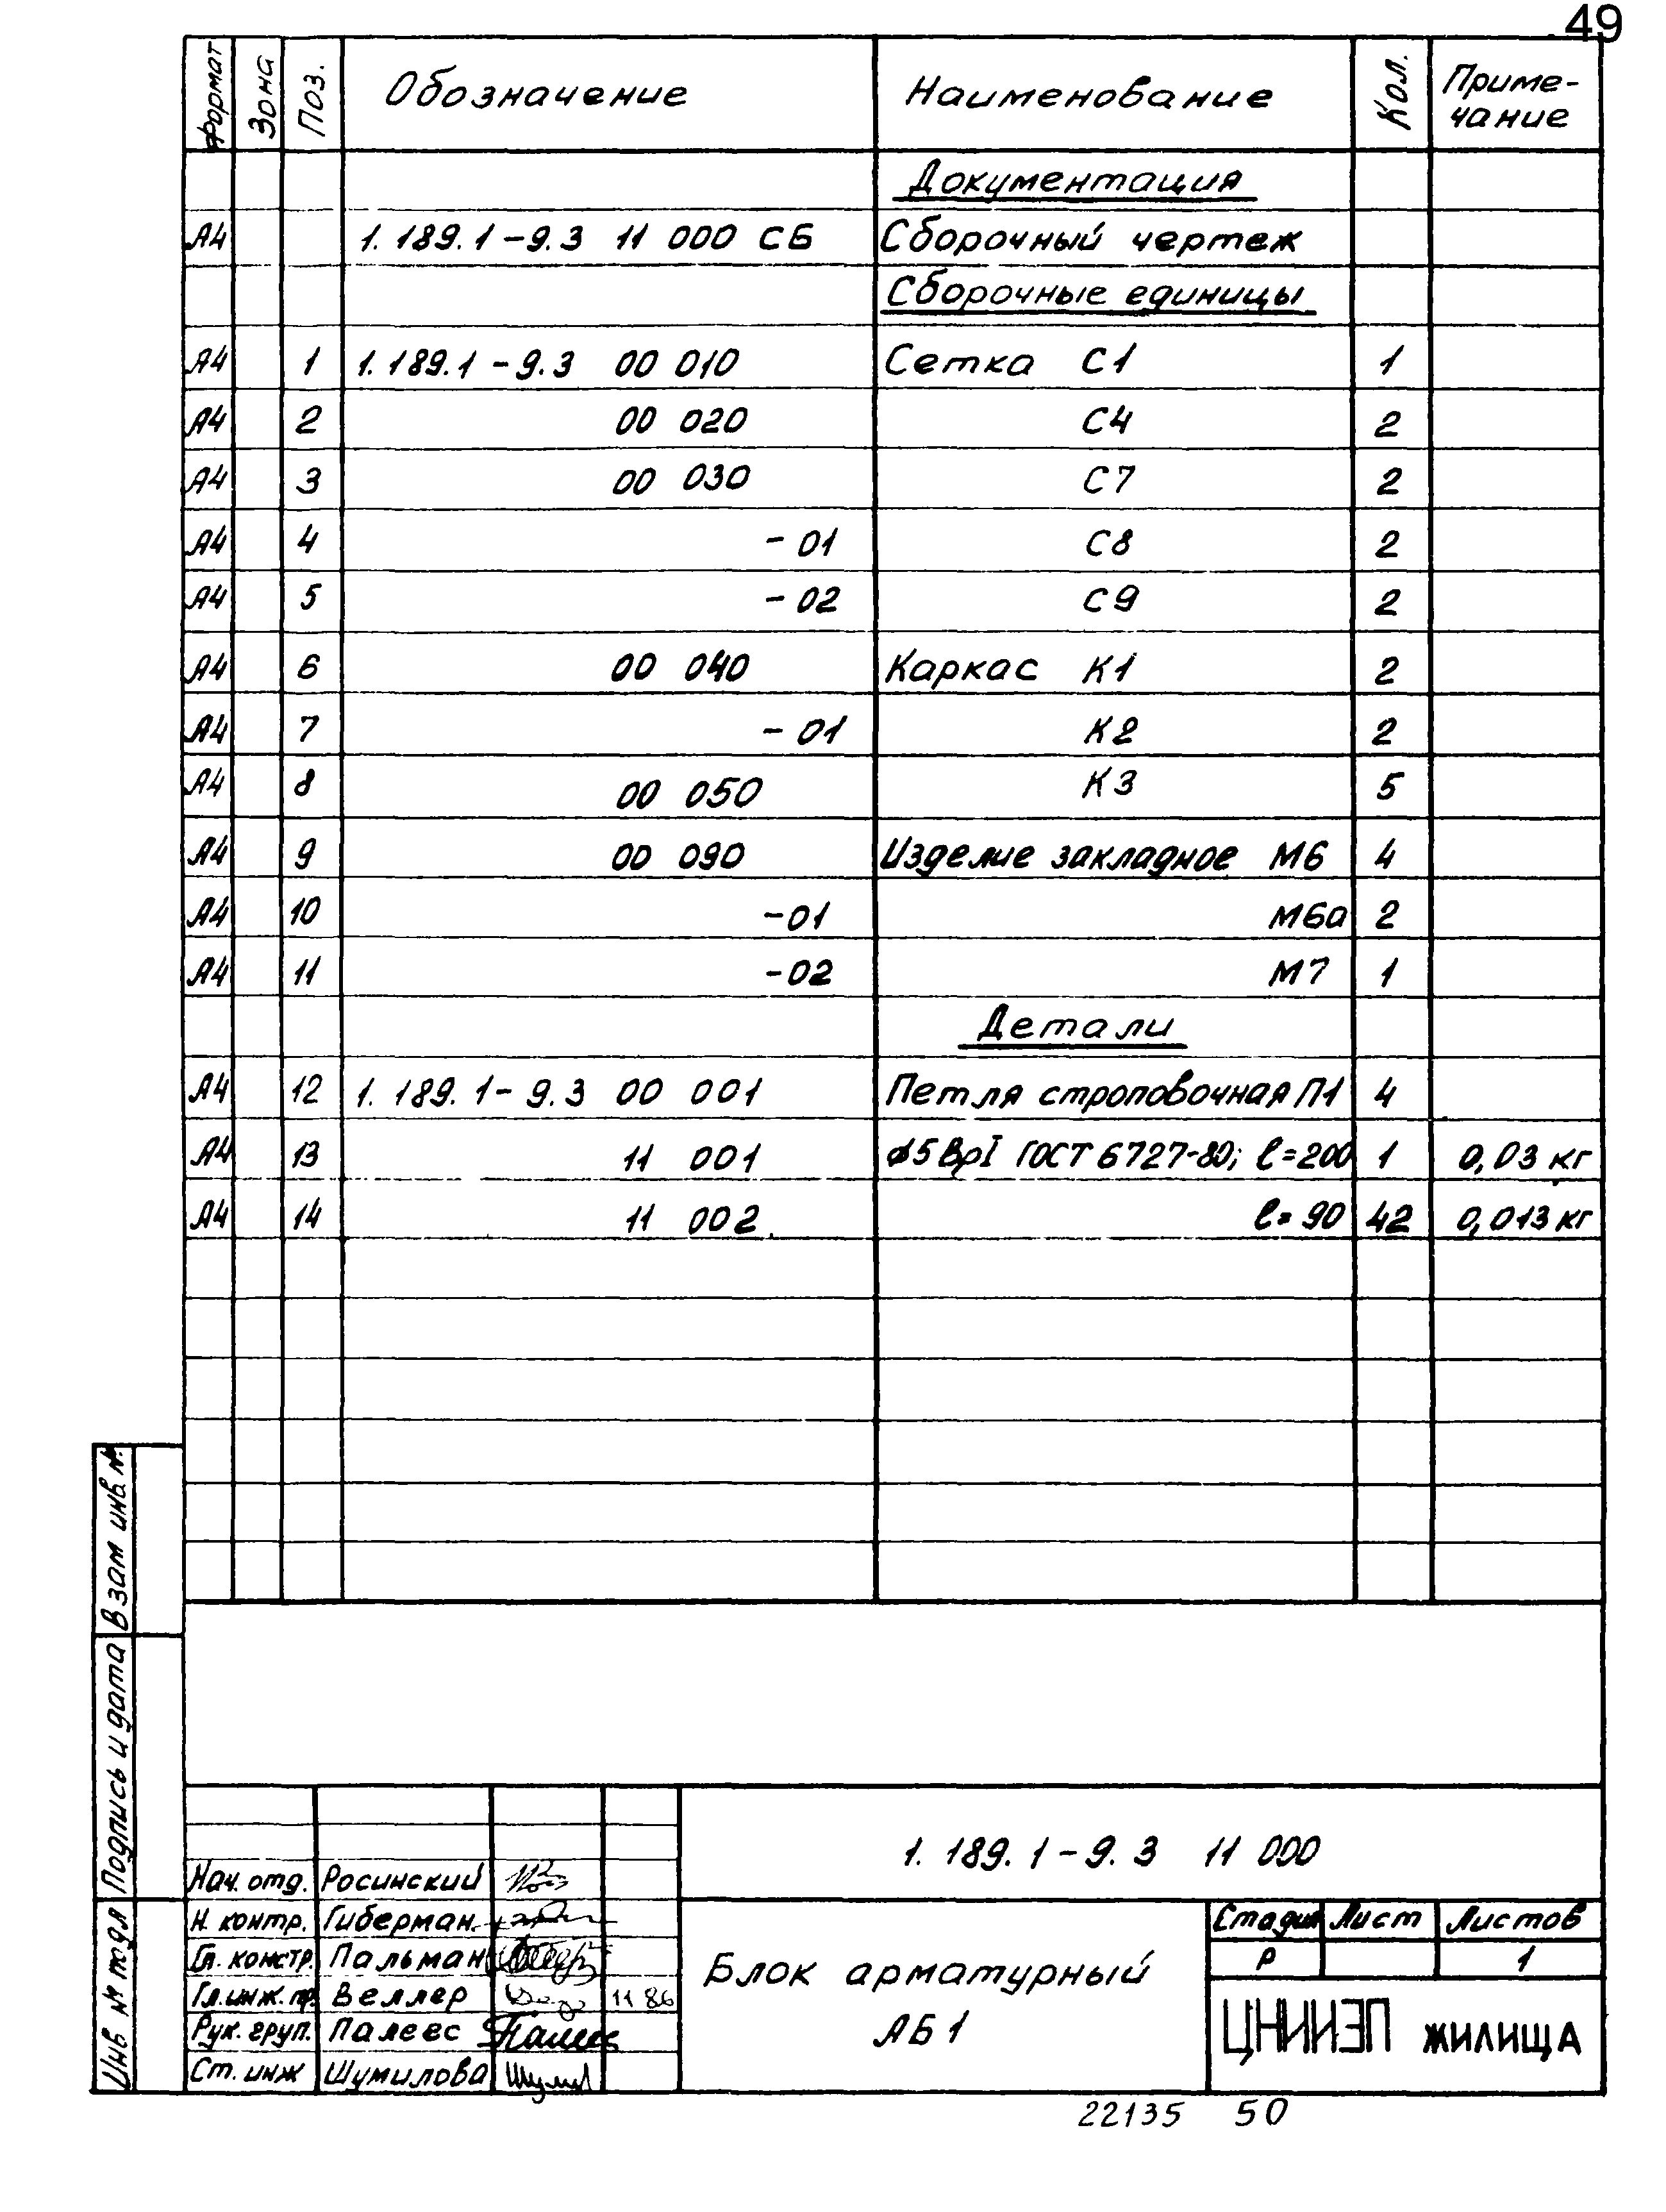 49
Формат Зона Поз. Обозначение Наименование Кол. Приме-
чание
Документация
А4 1.189.1-9.3 11 000 СБ Сборочный чертеж
Сборочные единицы
А4 1 1.189.1-9.3 00 010 Сетка С1 1
А4 2 00 020 С4 2
А4 3 00 030 С7 2
А4 4 -01 С8 2
А4 5 -02 С9 2
А4 6 00 040 Каркас К1 2
А4 7 -01 К2 2
А4 8 00 050 К3 5
А4 9 00 090 Изделие закладное М6 4
А4 10 -01 М6а 2
А4 11 -02 М7 1
Детали
А4 12 1.189.1-9.3 00 001 Петля строповочная П1 4
А4 13 11 001 ⌀5ВрI ГОСТ 6727-80; ℓ=200 1 0,03 кг
А4 14 11 002 ℓ=90 42 0,013 кг
Взам инв. №
Подпись и дата
Инв № подл
1.189.1-9.3 11 000
Нач. отд. Росинский
Н. контр. Гиберман
Гл. констр. Пальман
Гл. инж. пр. Веллер 11 86
Рук. груп. Палеес
Ст. инж Шумилова
Блок арматурный
АБ1
Стадия Лист Листов
Р 1
ЦНИИЭП жилища
22135 50